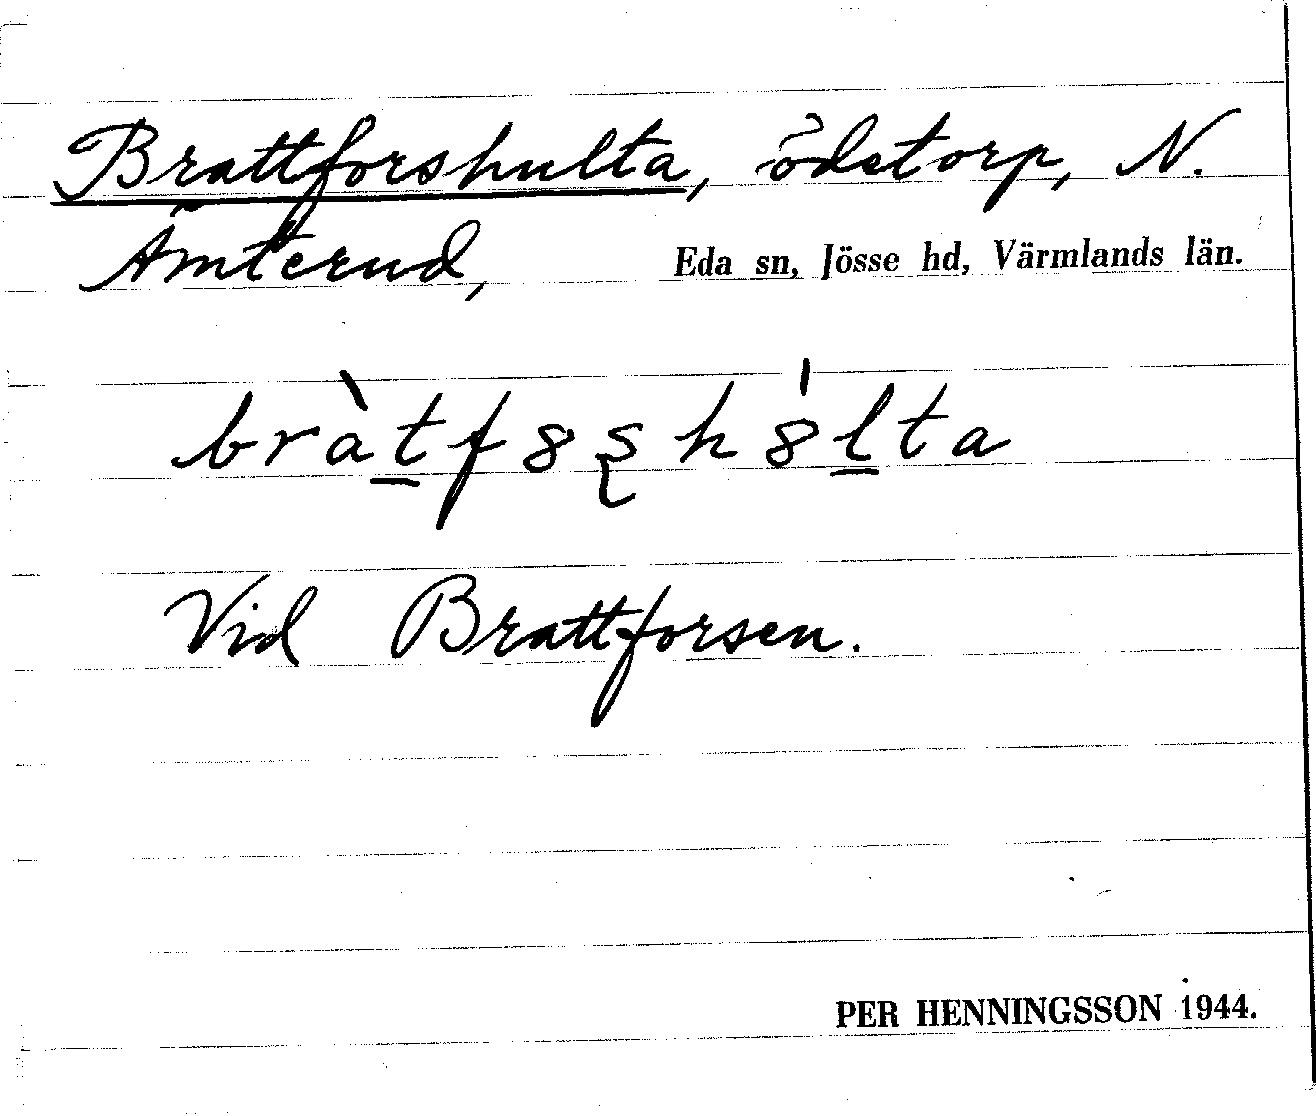 Brattforshulta, ödetorp, N.
Ämterud, Eda sn, Jösse hd, Värmlands län.
bràtf8ʂh8̍lta
Vid Brattforsen.
PER HENNINGSSON 1944.